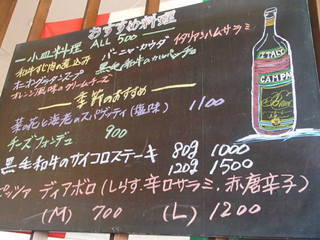 おすすめ料理
一小皿料理 ALL 500
バーニャ・カウダ イタリアンハムサラミ
和牛すじ肉の煮込み 黒毛和牛のカルパッチョ
オニオングラタンスープ
オレンジ風味のクリームチーズ
季節のおすすめ
菜の花と海老のスパゲッティ(塩味) 1100
チーズフォンデュ 900
黒毛和牛のサイコロステーキ 80g 1000
120g 1500
ピッツァ ディアボロ(しらす.辛口サラミ.赤唐辛子)
(M) 700 (L) 1200
CAMPA